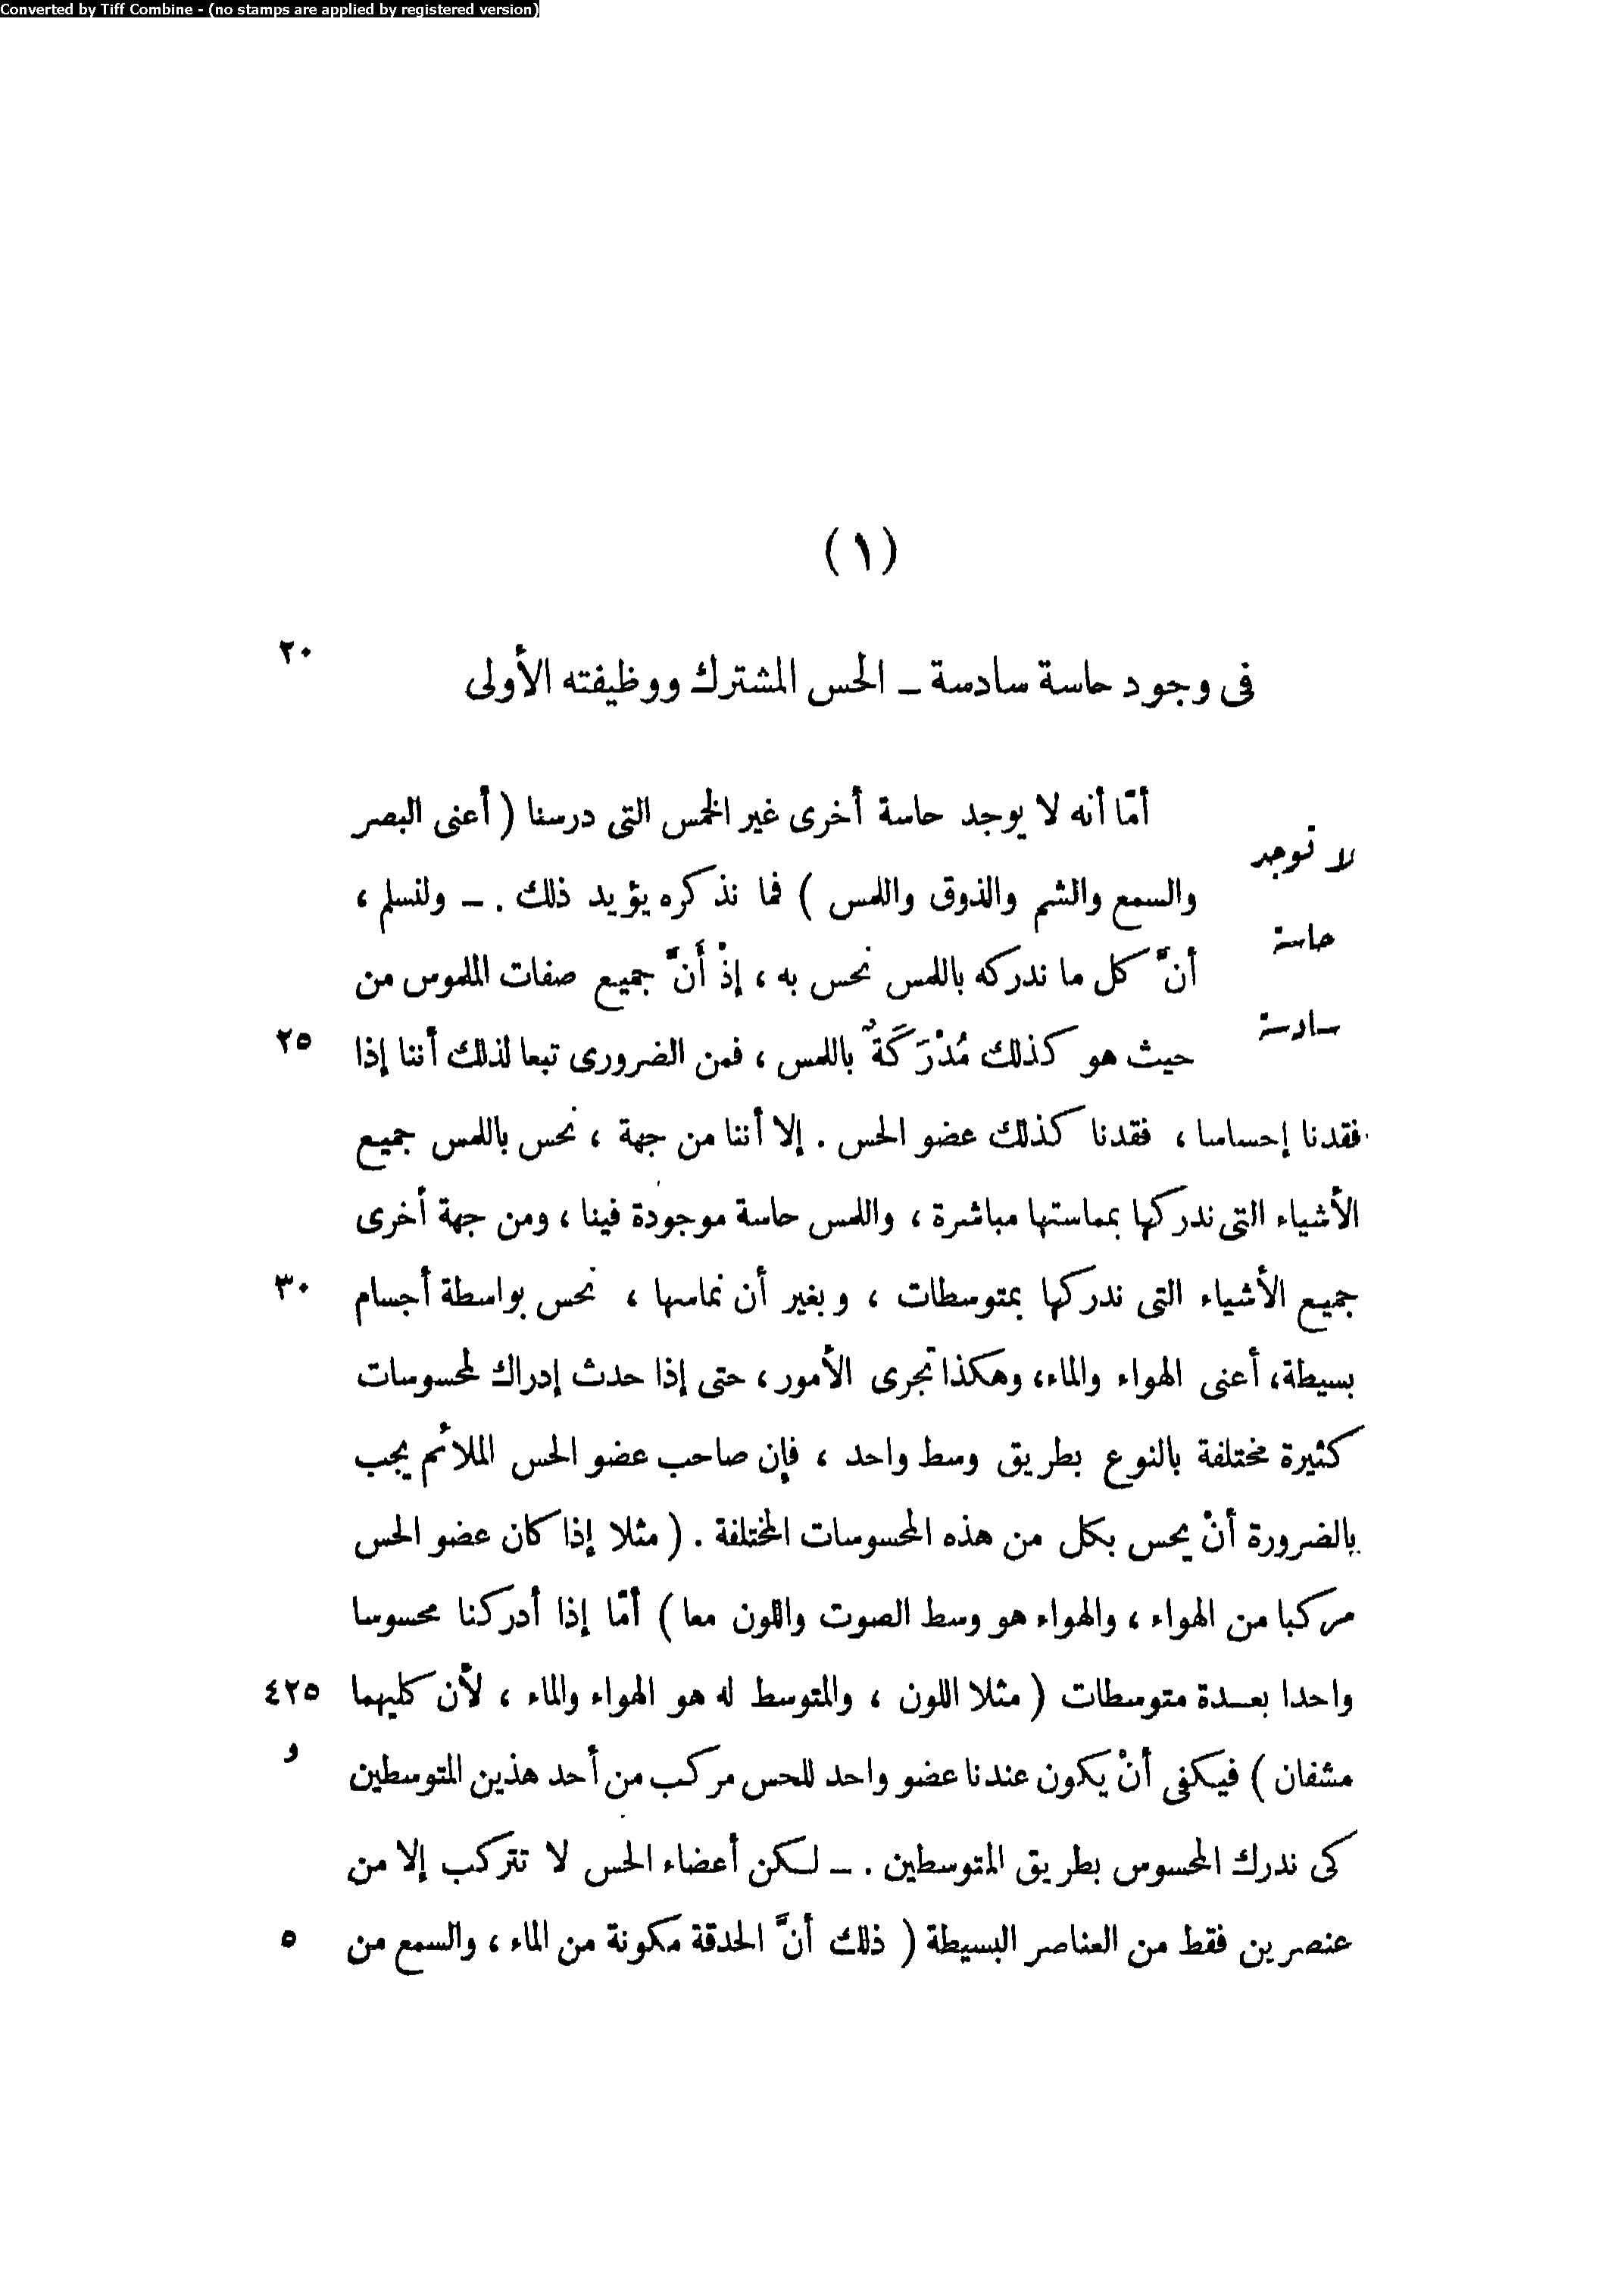 Converted by Tiff Combine - (no stamps are applied by registered version)
(١)
٢٠
فى وجود حاسة سادسة – الحس المشترك ووظيفته الأولى
أمّا أنه لا يوجد حاسة أخرى غير الخمس التى درسنا ( أعنى البصر
لا توجد
والسمع والشم والذوق واللمس ) فما نذكره يؤيد ذلك . – ولنسلم ،
حاسة
أنَّ كل ما ندركه باللمس نحس به ، إذْ أَنَّ جميع صفات الملموس من
سادسة
حيث هو كذلك مُدْرَكَةٌ باللمس ، فمن الضرورى تبعا لذلك أننا إذا ٢٥
فقدنا إحساسا ، فقدنا كذلك عضو الحس . إلا أننا من جهة ، نحس باللمس جميع
الأشياء التى ندركها بمماستها مباشرة ، واللمس حاسة موجودة فينا ، ومن جهة أخرى
جميع الأشياء التى ندركها بمتوسطات ، وبغير أن نماسها ، نحس بواسطة أجسام ٣٠
بسيطة، أعنى الهواء والماء، وهكذا تجرى الأمور ، حتى إذا حدث إدراك لمحسوسات
كثيرة مختلفة بالنوع بطريق وسط واحد ، فإن صاحب عضو الحس الملائم يجب
بالضرورة أنْ يحس بكل من هذه المحسوسات المختلفة . ( مثلا إذا كان عضو الحس
مركبا من الهواء ، والهواء هو وسط الصوت واللون معا ) أمّا إذا أدركنا محسوسا
واحدا بعدة متوسطات ( مثلا اللون ، والمتوسط له هو الهواء والماء ، لأن كليهما ٤٢٥
و
مشفان ) فيكفى أنْ يكون عندنا عضو واحد للحس مركب من أحد هذين المتوسطين
كى ندرك المحسوس بطريق المتوسطين . – لكن أعضاء الحس لا تتركب إلا من
عنصرين فقط من العناصر البسيطة ( ذلك أنَّ الحدقة مكونة من الماء ، والسمع من ٥